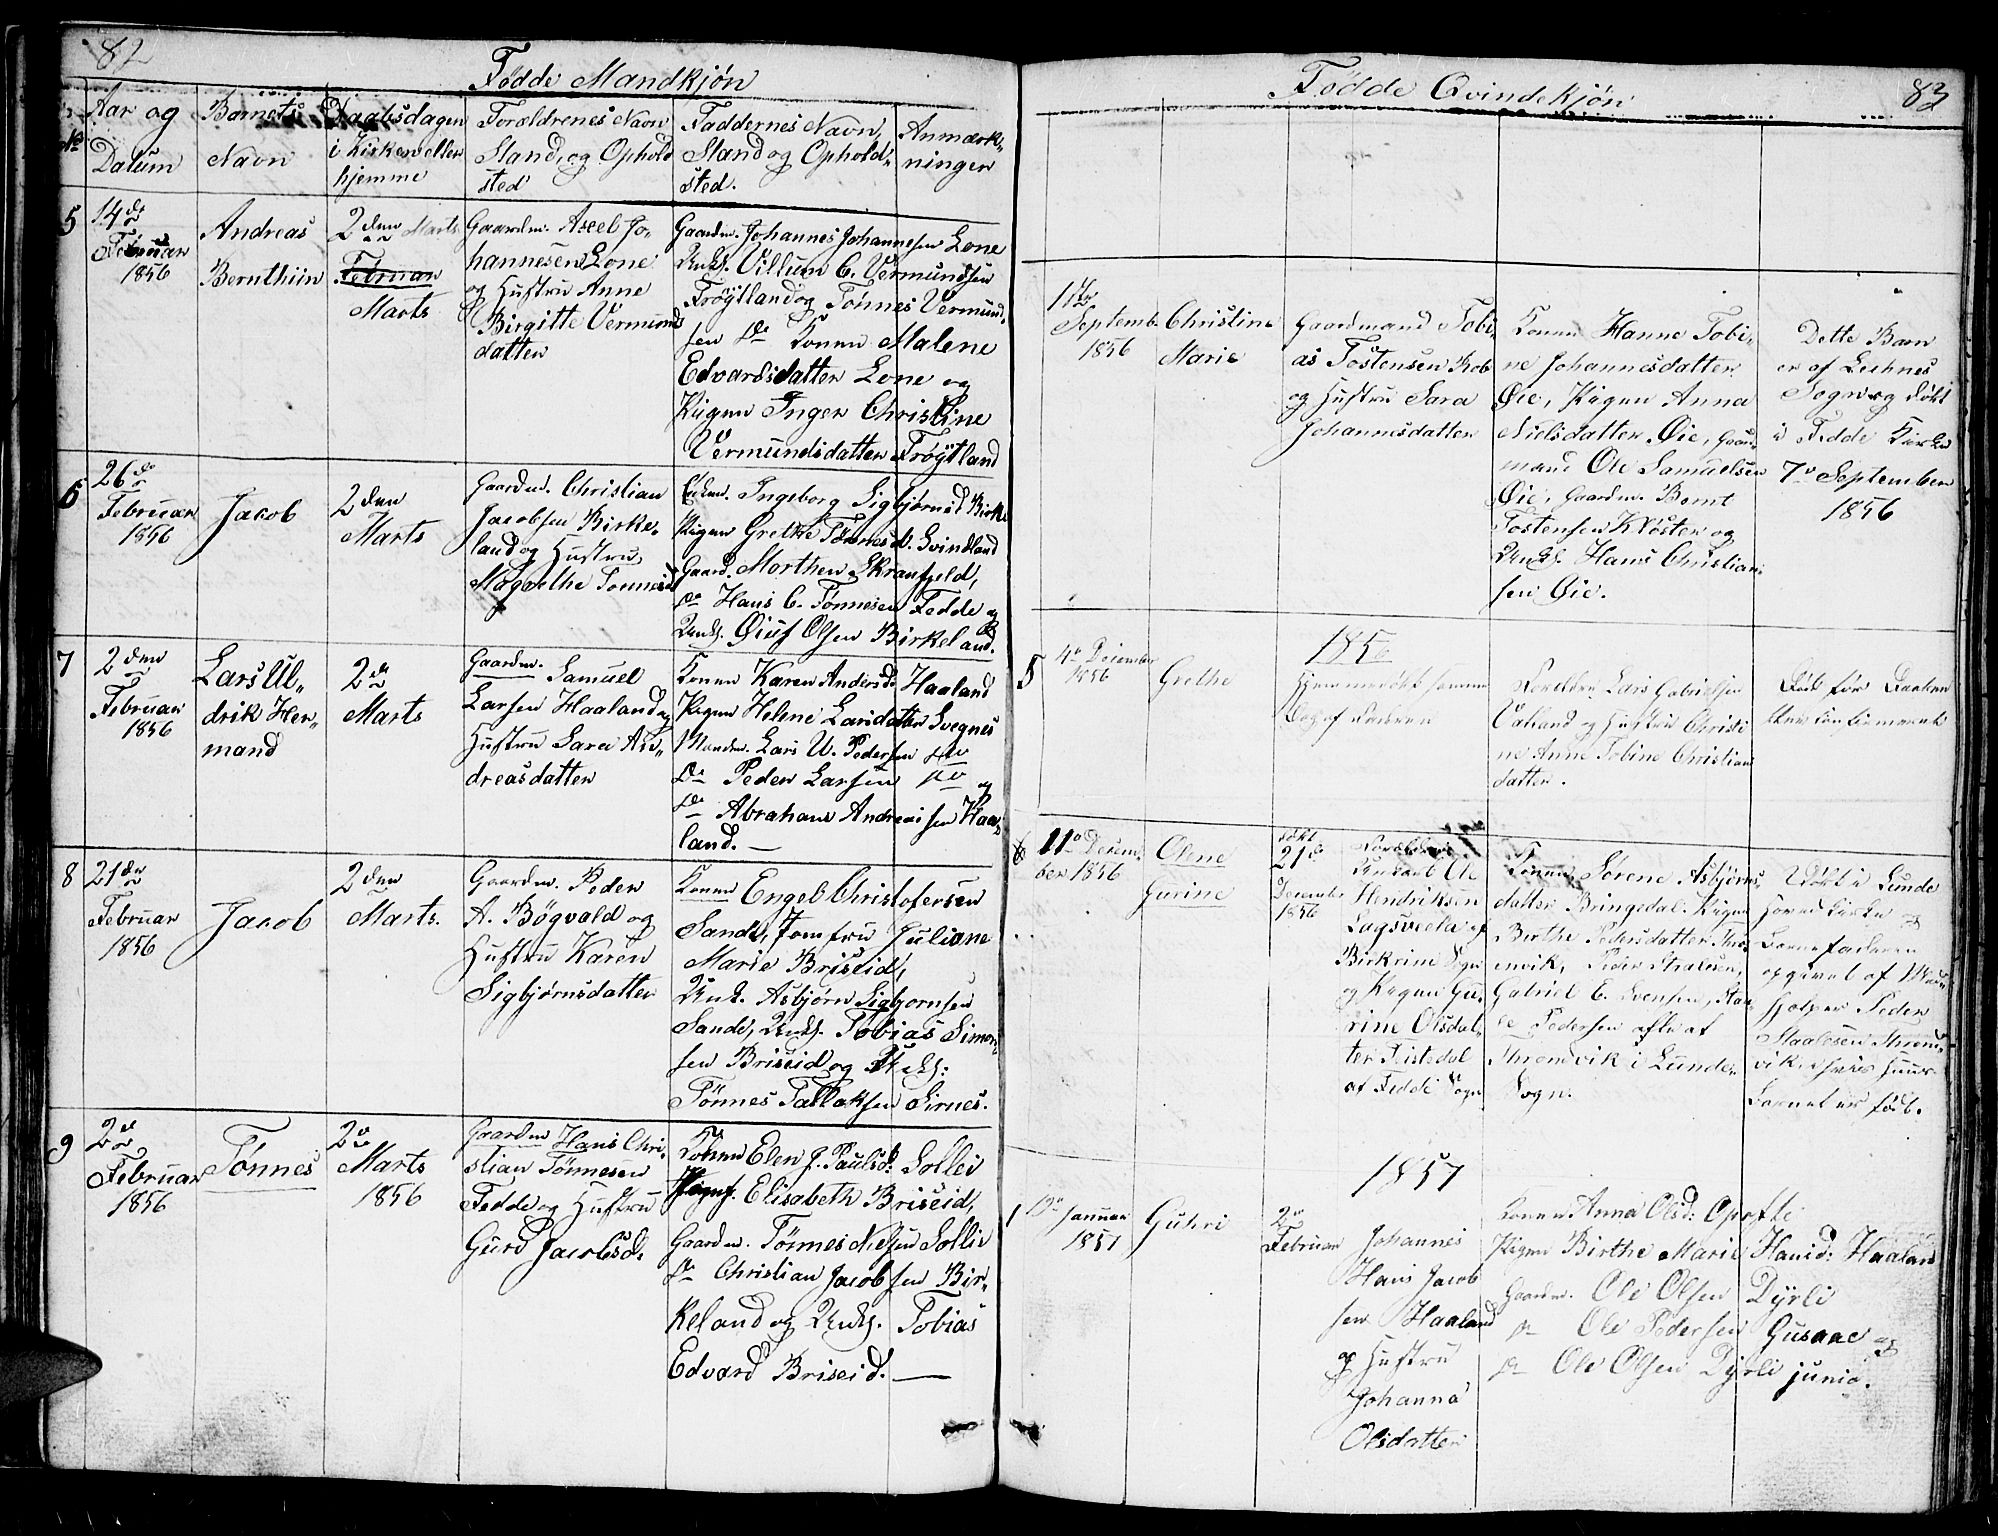 82
Fødde Mandkjøn
No
Aar og
Datum
Barnets
Navn
Daabsdagen
i Kirken eller
hjemme
Foroldrenes Navn
Stand, og Ophold
sted
Faddernes Navn,
Stand og Ophold-
sted.
Anmærk-
ninger
5
14de
Februar
1856
Andreas
Bernthiin
2den Marts
Februar
Marts
Gaardm. Axel Jo-
hannesen Lone
og Hustru Anne
Birgitte Vermunds
datter
Gaardm. Johannes Johannesen Lone
Unks. Villum C. Vermundsen
Frøytland og Tønnes Vermund-
sen do Konen Malene
Edvardsdatter Lone og
Pigen Inger Christine
Vermundsdatter Frøytland
6
26de
Februar
1856
Jacob
2den
Marts
Gaardm. Christian
Jacobsen Birke-
land og Hustru
Magrethe Tonnesd
Enken. Ingeborg Sigbjørnsd Birke
Pigen Grethe Tønnesd. Svindland
Gaard. Morthen Skranfjeld,
do Hans C. Tønnesen Fedde og
Unks. Øiuf Olsen Birkeland.
7
2den
Februar
1856
Lars Ul-
drik Her-
mand
2de
Marts
Gaardm. Samuel
Larsen Haaland og
Hustru Sara An-
dreasdatter
Konen Karen Andersd. Haaland
Pigen Helene Larsdatter Svegnes
Lars U. Pedersen do
do Peder Larsen do og
do Abraham Andreassen Haa-
land.
8
21de
Februar
1856
Jacob
2den
Marts.
Gaardm. Peder
A. Bøgvald og
Hustru Karen
Sigbjørnsdatter
Konen Engel Christofersen
Sande, Jomfru Juliane
Marie Briseid,
Unk. Asbjørn Sigbjornsen
Sande, Unks. Tobias Simon-
sen Briseid og Unks:
Tønnes Tallaksen Sirnes.
9
2de
Februar
1856
Tønnes
2de
Marts
1856
Gaardm Hans Chri-
stian Tønnesen
Fedde og Hustru
Gurd Jacobsd.
Konen Elen J. Paulsd: Sollie
Elisabeth Briseid,
Gaardm. Tønnes Nilsen Sollie
do Christian Jacobsen Bir-
keland og Unks. Tobias
Edvard Briseid.
Fødde Qvindekjøn
83
Septemb.
1856
Christine
Marie
Gaardmand Tobi-
as Tostensen Rob
og Hustru Sara
Johannesdatter
Konen Hanne Tobi-
ne Johannesdatter
Øie, Pigen Anna
Nielsdatter Øie, Gaard-
mand Ole Samuelsen
Øie, Gaardm. Bernt
Tostensen Kloster og
Unks. Hans Christian-
sen Øie.
Dette Barn
er af Leshnes
Sogn og døbt
i Fedde Kirke
7de September
1856
1856
5
4de December
1856
Grethe
Hjemmedøbt samme
Dag af Faderen
Foreldre Lars Gabrielsen
Vatland og Hustru Christi
ne Anne Tobine Christians
datter.
Død før Daaben
blev confirmeret
6
11de Decem-
ber 1856
Olene
Gurine
døbt
21de
December
1856
Foreldre
Unkarl Ole
Hendriksen
Lagsveela af
Birkrim Sogn
og Pigen Gu-
rine Olsdat-
ter Feistedal
af Fedde Sogn
Konen Sørene Asbjørns-
datter Bringedal. Pigen
Birthe Pedersdatter Thro-
emvik, Peder Stralesen,
Gabriel E. Svensen, Staa-
le Pedersen alle af
Thromvik i Lunde
Sogn.
Døbt i Lunde
Hovedkirke og
Barnefaderen
opgivet af Med-
hjelper Peder
Staalesen Throm-
vik i hvis Huus
Barnet er født.
1857
1
Januar
1857
Guhri
2de
Februar
Johannes
Hans Jacob
sen Haaland
og Hustru
Johanna
Olsdatter
Konen Anna Olsd: Opofte
Pigen Birthe Marie Hansd: Haaland
Gaardm. Ole Olsen Dyrli
do Ole Pedersen Gusaae og
do Ole Olsen Dyrli junio.